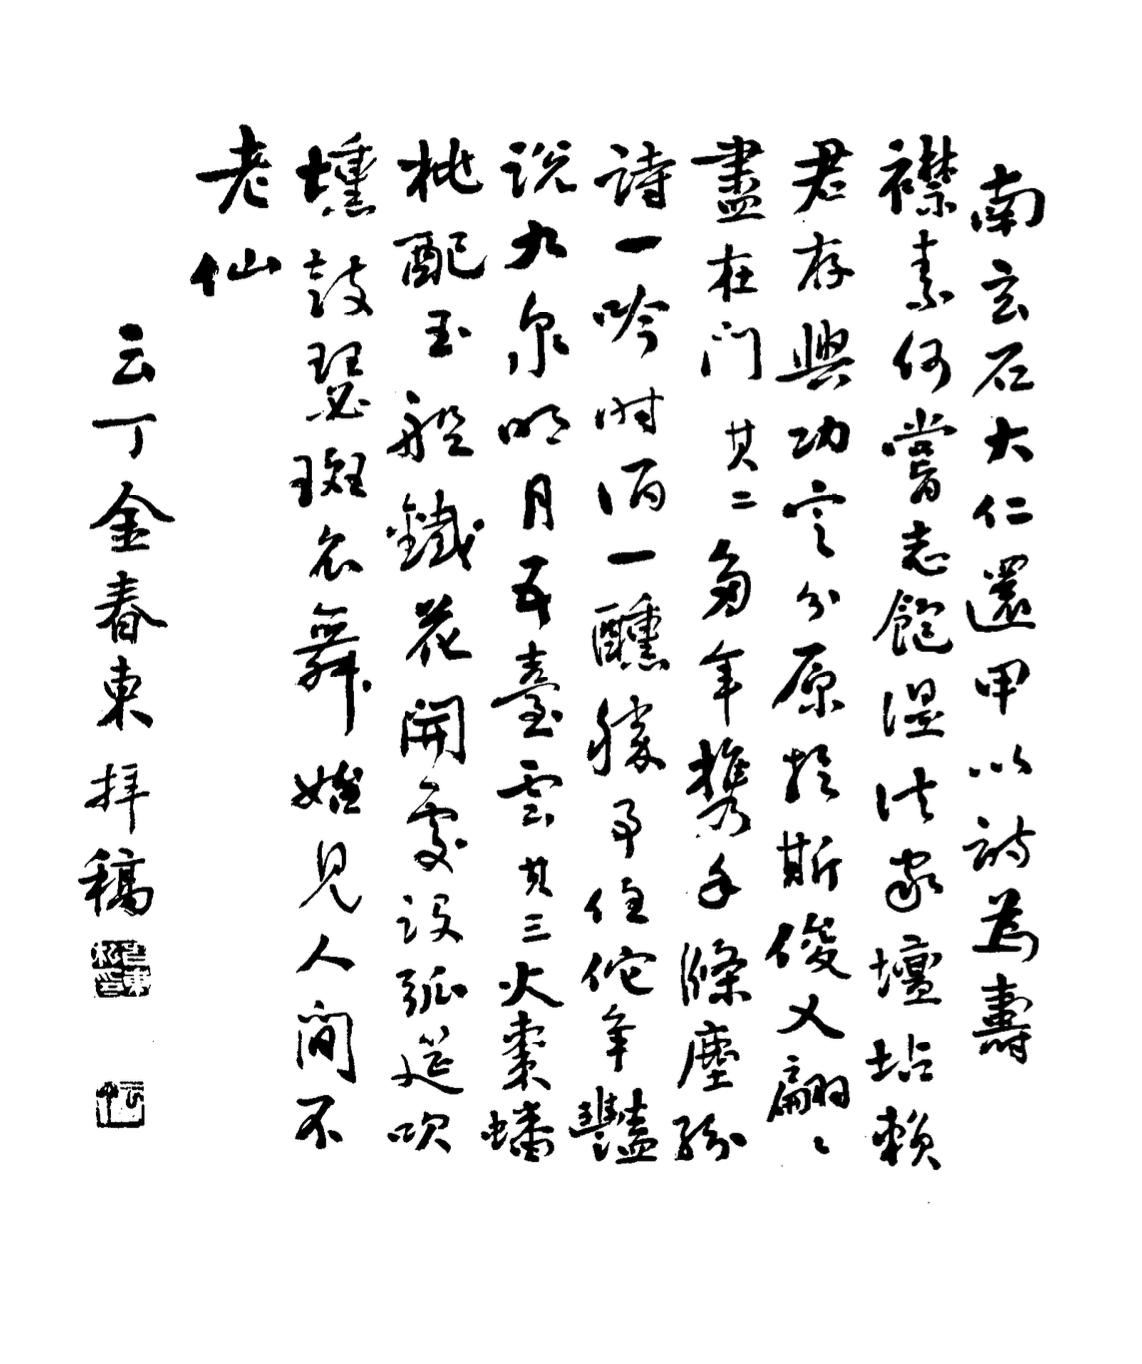 南玄石大仁還甲以詩為壽
襟素何嘗志飽溫法家壇坫賴
君存興功定分原於斯俊乂翩〻
盡在門其二多年携手滌塵紛
詩一吟時酒一醺勝事任佗年豔
說九泉明月五臺雲其三火棗蟠
桃配玉船鐵花開處設弧筵吹
壎鼓瑟斑衣舞嬉見人間不
老仙
云丁金春東拜稿